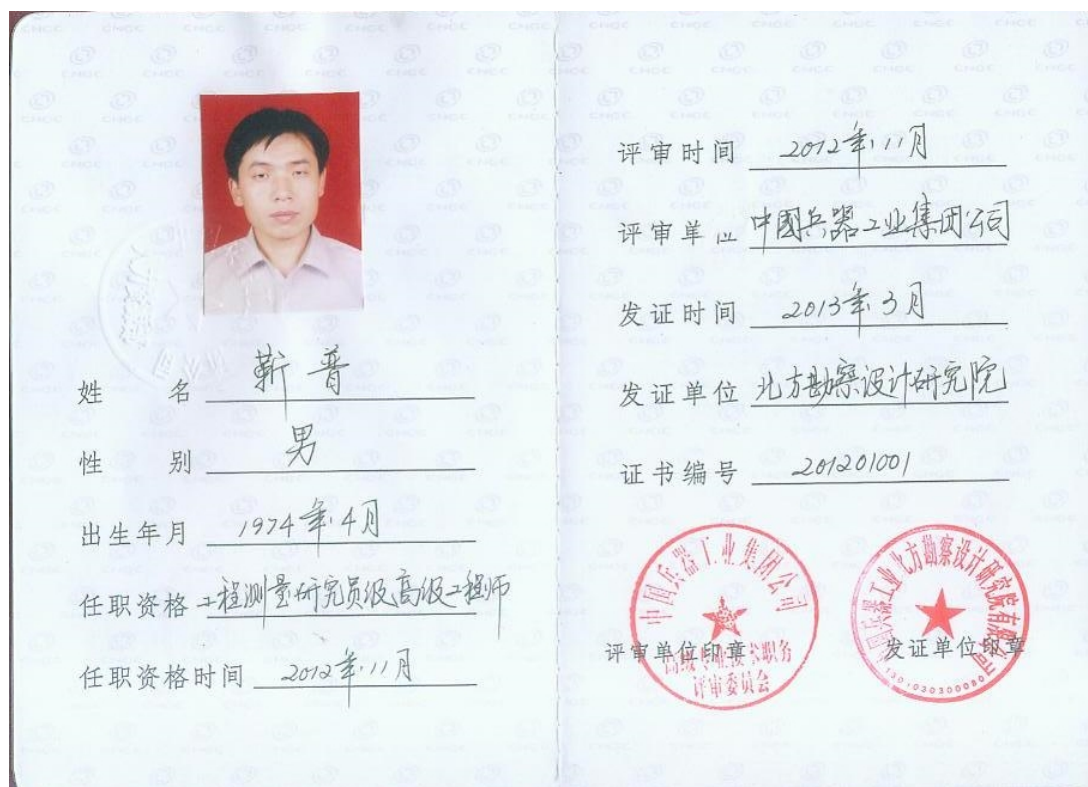 姓名 靳普
性别 男
出生年月 1974年4月
任职资格 工程测量研究员级高级工程师
任职资格时间 2012年11月
评审时间 2012年11月
评审单位 中國兵器工业集团公司
发证时间 2013年3月
发证单位 北方勘察设计研究院
证书编号 201201001
中国兵器工业集团公司
高级专业技术职务
评审委员会
评审单位印章
中国兵器工业北方勘察设计研究院有限公司
发证单位印章
1301030300080
CNGC